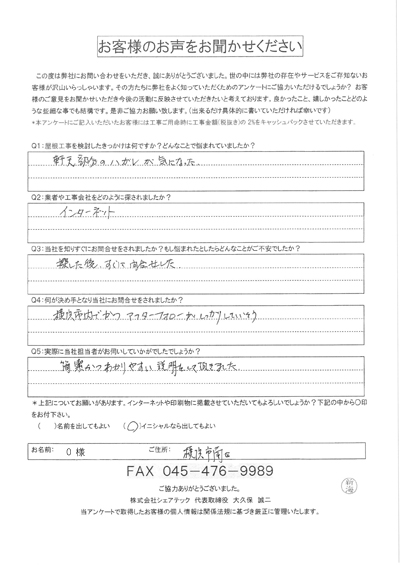 お客様のお声をお聞かせください
この度は弊社にお問い合わせをいただき、誠にありがとうございました。世の中には弊社の存在やサービスをご存知ないお
客様が沢山いらっしゃいます。その方たちに弊社をよく知っていただくためのアンケートにご協力いただけるでしょうか？ お客
様のご意見をお聞かせいただき今後の活動に反映させていただきたいと考えております。良かったこと、嬉しかったことどのよ
うな些細な事でも結構です。是非ご協力お願い致します。(出来るだけ具体的に書いていただければ幸いです)
*本アンケートにご記入いただいたお客様には工事ご用命時に工事金額(税抜き)の2%をキャッシュバックさせていただきます.
Q1:屋根工事を検討したきっかけは何ですか？どんなことで悩まれていましたか？
軒天部分のハガレが気になった
Q2:業者や工事会社をどのように探されましたか？
インターネット
Q3:当社を知りすぐにお問合せをされましたか？もし悩まれたとしたらどんなことがご不安でしたか？
探した後、すぐに問合せした
Q4:何が決め手となり当社にお問合せをされましたか？
横浜市内でかつ アフターフォローがしっかりしていそう
Q5:実際に当社担当者がお伺いしていかがでしたでしょうか？
簡潔かつわかりやすい説明をして頂きました
*上記についてお願いがあります。インターネットや印刷物に掲載させていただいてもよろしいでしょうか？下記の中から〇印
をお付下さい。
( )名前を出してもよい (〇)イニシャルなら出してもよい
お名前: O 様 ご住所: 横浜市南区
FAX 045-476-9989
ご協力ありがとうございました。
株式会社シェアテック 代表取締役 大久保 誠二
当アンケートで取得したお客様の個人情報は関係法規に基づき厳正に管理いたします。